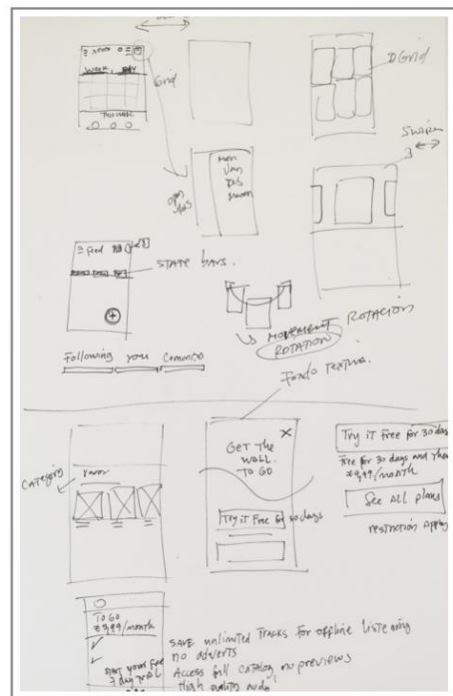 Grid
Grid
Week
Swipe
mon
Jan
Feb
Feed
STATE bars.
Following you
MOVEMENT ROTACION
ROTATION
Fondo Textura.
GET THE
WALL
TO GO
X
CATEGORY
Try it Free for 30 days
Try iT Free for 30 days
Free for 30 days and then
9,99/month
See All plans
restriction Apply
TO GO
9,99/month
START your Free
7 day TRIAL
SAVE unlimited Tracks for offline listening
no adverts
Access full catalog, no previews
High quality audio